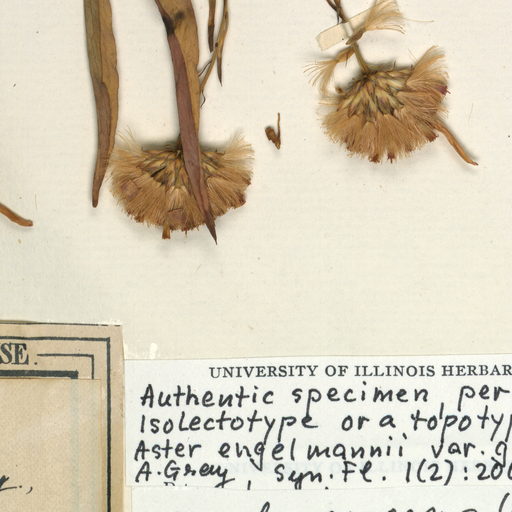 SE.
UNIVERSITY OF ILLINOIS HERBAR
Authentic specimen, per
Isolectotype or a topotyp
Aster engelmannii var. g
A. Gray, Syn. Fl. 1(2):200